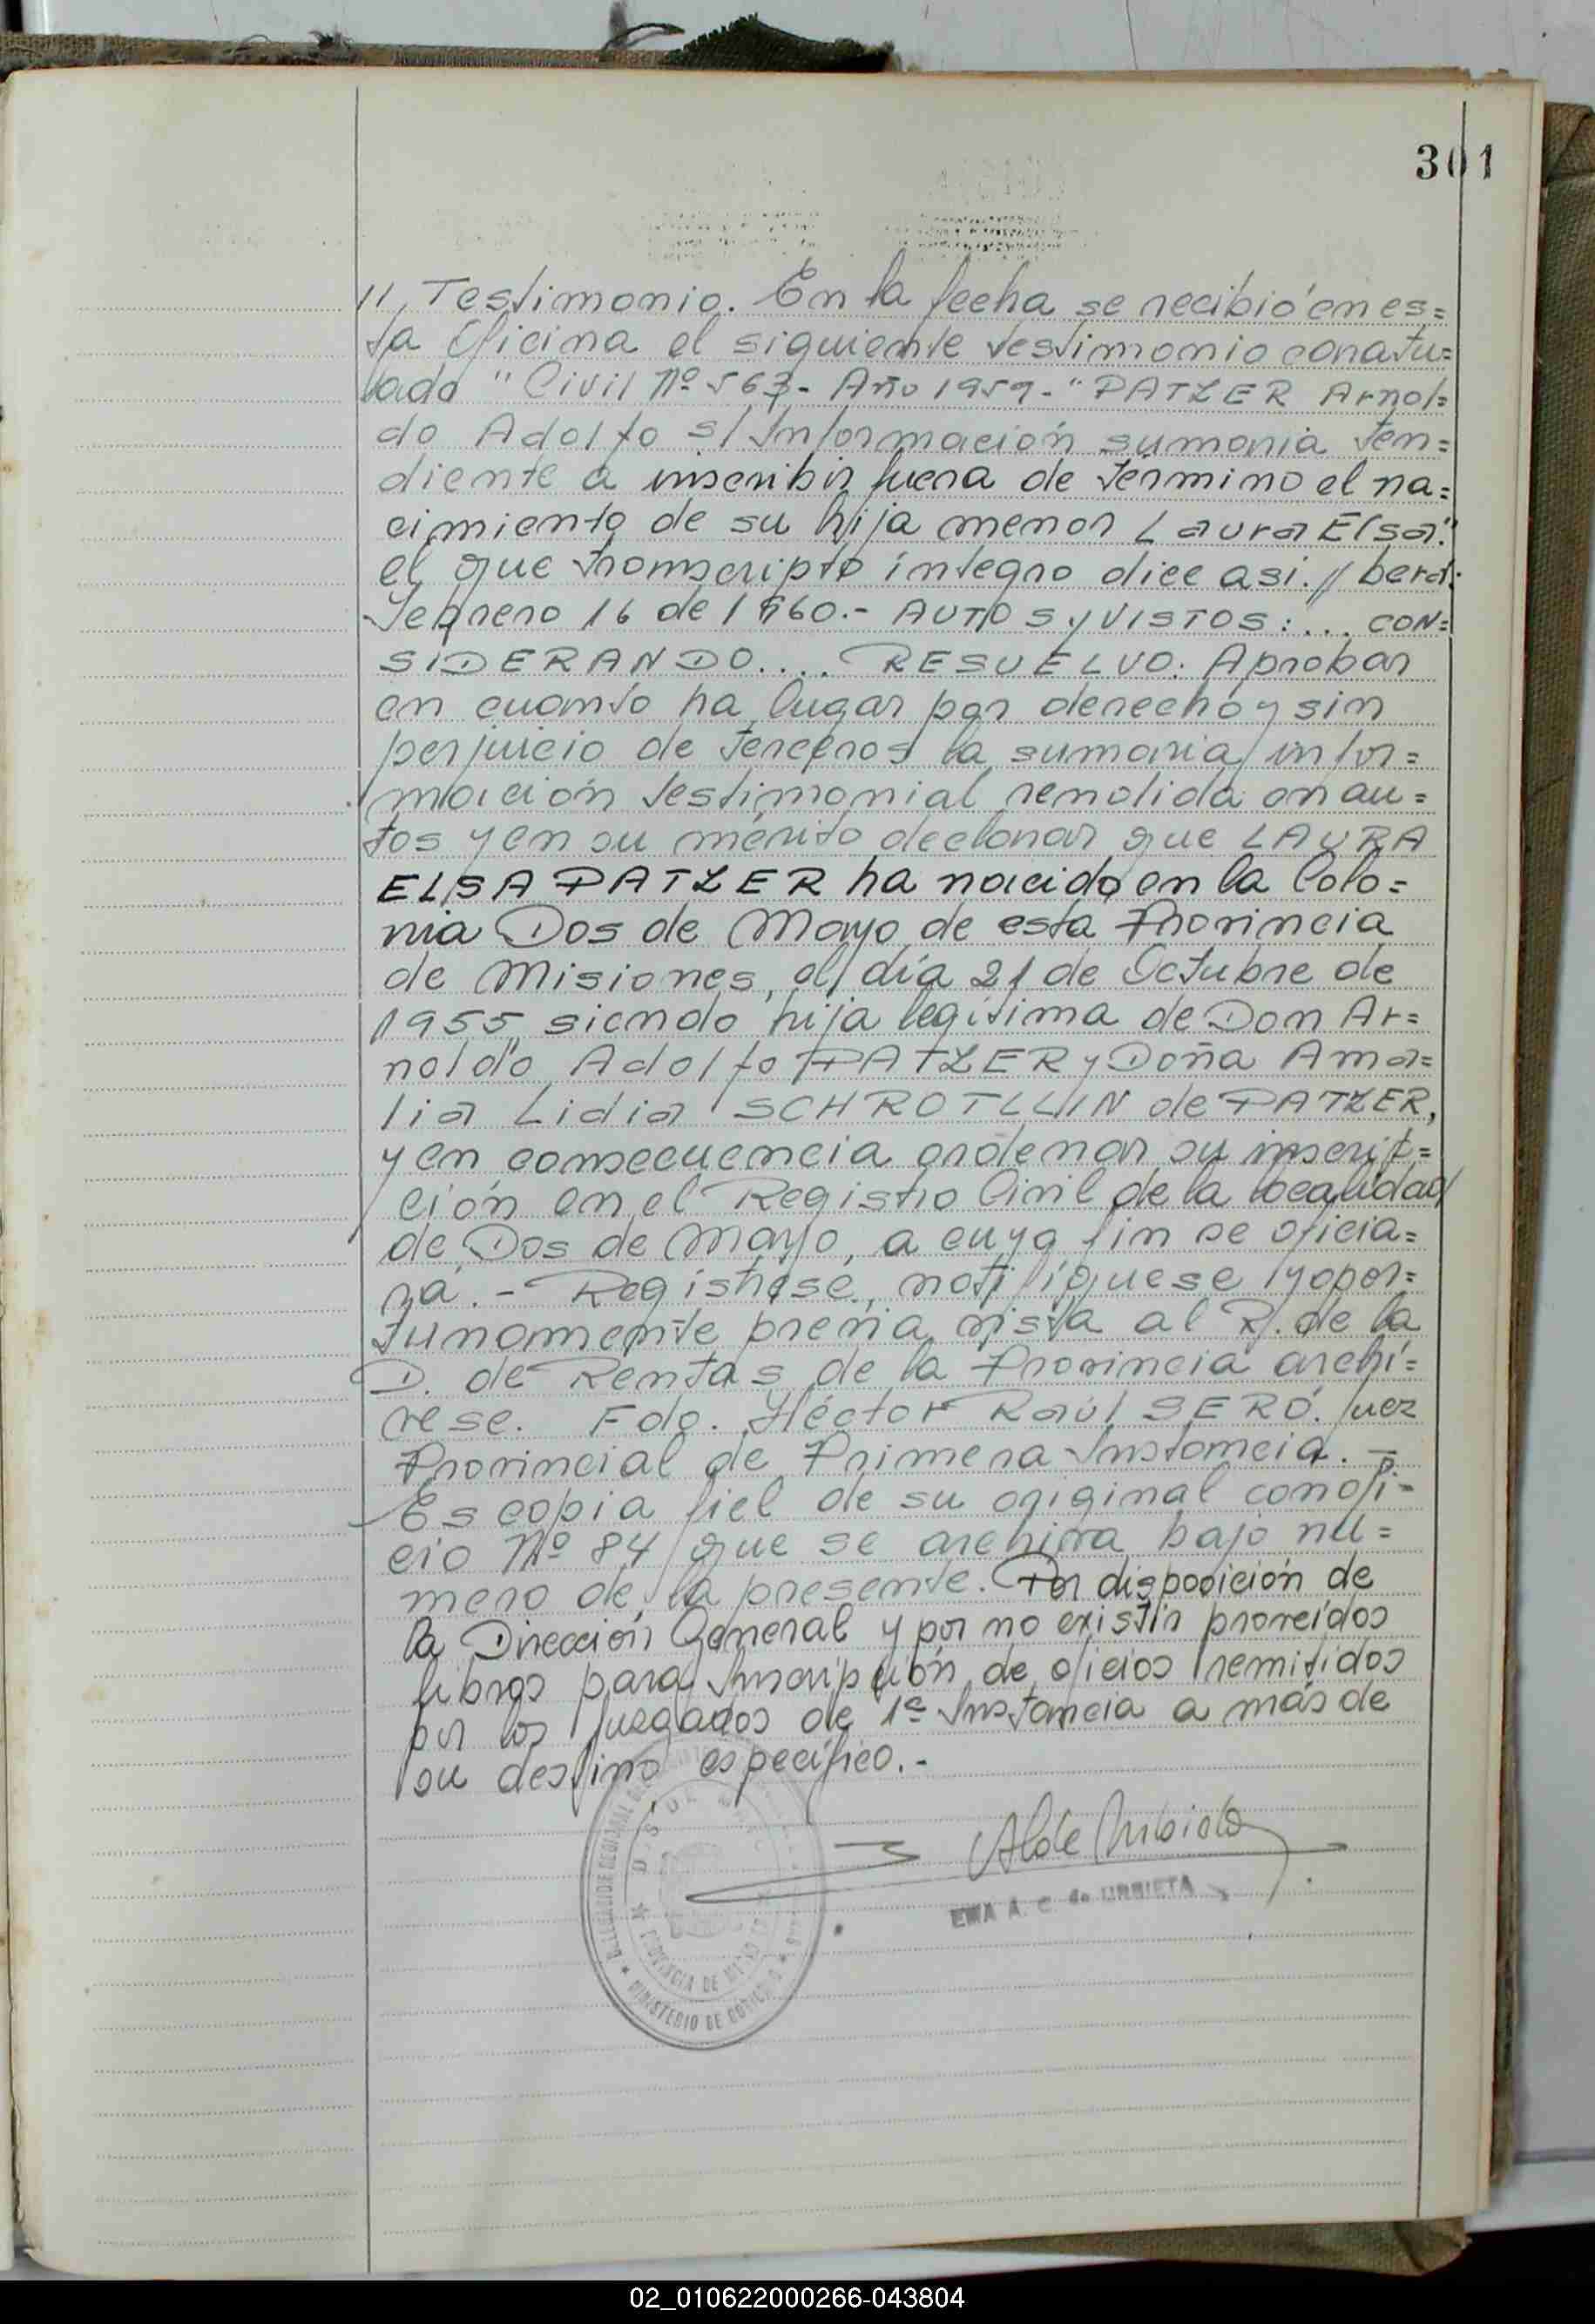 301
11, Testimonio. En la fecha se recibió en es=
ta Oficina el siguiente testimonio caratu=
lado "Civil Nº 563- Año 1959-" PATZER Arnol=
do Adolfo s/ Información sumaria ten=
diente a inscribir fuera de termino el na=
cimiento de su hija menor Laura Elsa."
el que transcripto íntegro dice asi. //
Febrero 16 de 1960.- AUTOS y VISTOS:... CON=
SIDERANDO.... RESUELVO: Aprobar
en cuanto ha lugar por derecho y sin
perjuicio de terceros la sumaria infor=
mación testimonial rendida en au=
tos y en su mérito declarar que LAURA
ELSA PATZER ha nacido en la Colo=
nia Dos de Mayo de esta Provincia
de Misiones, el día 21 de Octubre de
1955, siendo hija legítima de Don Ar=
noldo Adolfo PATZER y Doña Ama=
lia Lidia SCHROTLLIN de PATZER,
y en consecuencia ordenar su inscrip=
ción en el Registro Civil de la localidad
de Dos de Mayo, a cuyo fin se oficia=
rá.- Registrese, notifíquese y opor=
tunamente previa vista al R. de la
D. de Rentas de la Provincia archí=
vese. Fdo. Héctor Raúl SERÓ. Juez
Provincial de Primera Instancia. -
Es copia fiel de su original con ofi-
cio Nº 84 que se archiva bajo nú=
mero de la presente. Por disposición de
la Dirección General y por no existir proveídos
libros para Inscripción de oficios remitidos
por los Juzgados de 1ª Instancia a más de
su destino específico.-
EMA A. C. de URBIETA
PROVINCIA DE MISIONES
MINISTERIO DE GOBIERNO
02_010622000266-043804